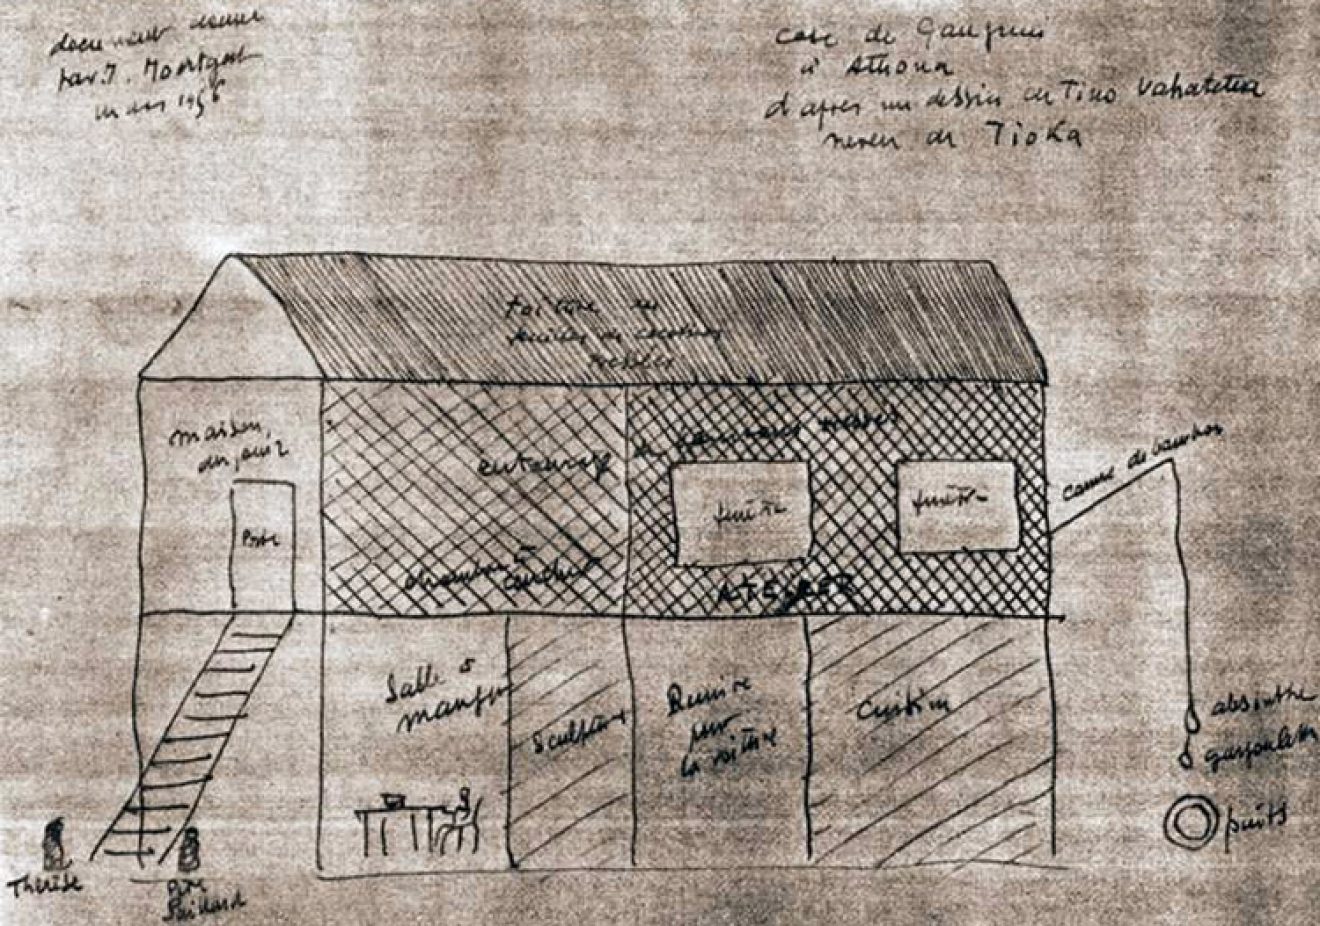 document donné
par J.
en mars 1956
case de Gauguin
à Atuona
d'apres un dessin de Tino Vahatetua
neveu de Tioka
toiture en
feuilles de cocotiers
tressées
maison
du jouir
Porte
entourage de bambous tressés
fenêtre
fenêtre
canne de bambou
chambre à
coucher
ATELIER
Salle à
manger
Sculpture
Remise
pour
la voiture
Cuisine
absinthe
gargoulette
puits
Thérèse
Père
Paillard